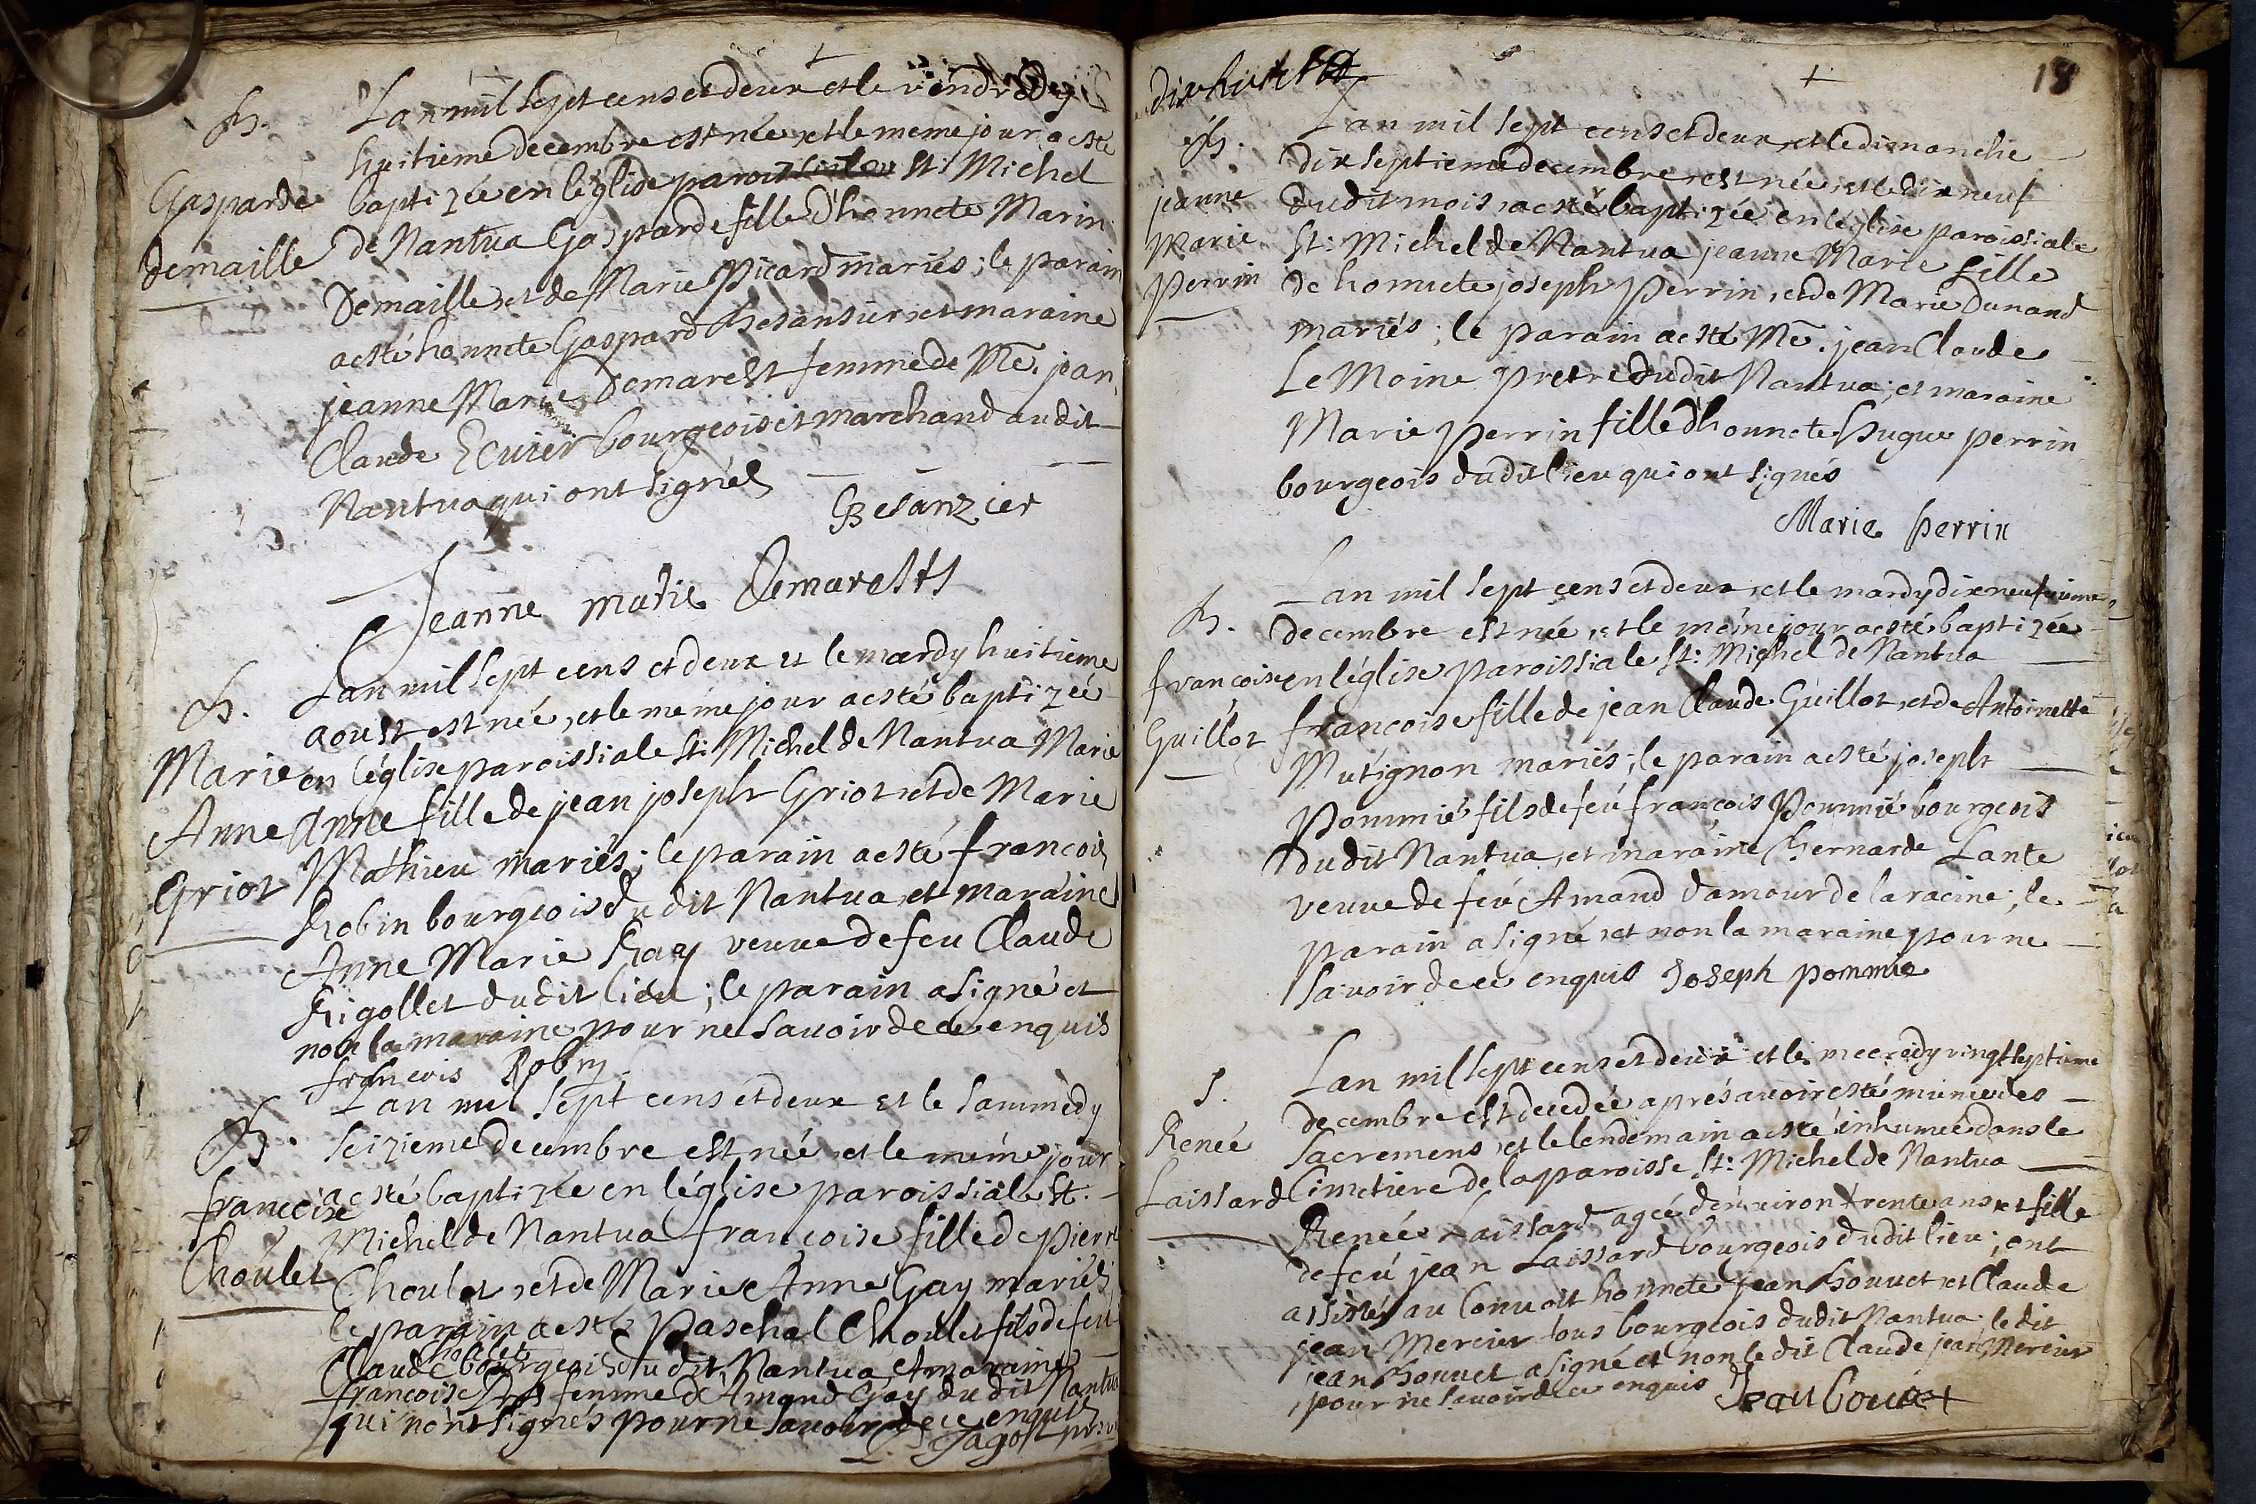 B.
Lan mil sept cens et deux et le vendredy
huitieme decembre est née, et le meme jour a esté
Gasparde
baptizée en léglise paroissiale St: Michel
demaille
de Nantua Gasparde fille dhonnete Marin
Demaille, et de Marie Picard mariés; le parain
a esté honnete Gaspard Besansier, et maraine
jeanne Marie Demarest femme de Me. jean
Claude Ecuier bourgeois et marchand audit
Nantua qui ont signés
Besanzier
Jeanne marie Demarests
B.
Lan mil sept cens et deux et le mardy huitieme
aoust est née, et le méme jour a esté baptizée
Marie
en léglise paroissiale St: Michel de Nantua Marie
Anne
Anne fille de jean joseph Griot, et de Marie
Griot
Mathieu mariés; le parain a esté francois
Robin bourgeois dudit Nantua, et maraine
Anne Marie Ray veuve de feu Claude
Rigollet dudit lieu; le parain a signé et
non la maraine pour ne savoir de ce enquis
françois Robin
B.
Lan mil sept cens et deux et le sammedy
seizieme decembre est née, et le méme jour
francoise
a esté baptizée en léglise paroissiale St.
Michel de Nantua francoise fille de pierre
Choulet
Choulet, et de Marie Anne Gay mariés
le parain a esté Paschal Choulet fils de feu
Claude Choulet bourgeois dudit Nantua et maraine
francoise femme de Amand Gay du dit Nantua
qui nont signés pour ne savoir de ce enquis
dix huict
18
B.
Lan mil sept cens et deux, et le dimanche
dix septieme decembre, est née, et le dix neuf
jeanne
dudit mois, a esté baptizée en léglise paroissiale
Marie
St: Michel de Nantua jeanne Marie fille
Perrin
de honnete joseph Perrin, et de Marie Dunand
mariés; le parain a esté Me. jean Claude
Le Moine pretre dudit Nantua; et maraine
Marie Perrin fille dhonnete Hugue perrin
bourgeois dudit lieu qui ont signés
Marie perrin
B.
Lan mil sept cens et deux, et le mardy dix neufvieme
decembre est née, et le méme jour a esté baptizée
francoise
en léglise paroissiale St: Michel de Nantua
Guillot
francoise fille de jean Claude Guillot, et de Antoinette
Mutignon mariés; le parain a esté joseph
Pommié fils de feu francois Pommié bourgeois
dudit Nantua, et maraine Bernarde Lante
veuve de feu Amand Damour de la racine; le
parain a signé, et non la maraine pour ne
savoir de ce enquis Joseph pommie
S.
Lan mil sept cens et deux et le mecredy vingt septieme
decembre est decedée aprés avoir esté munie des
Renée
sacremens, et le lendemain a esté inhumée dans le
Laissard
Cimetiere de la paroisse St: Michel de Nantua
Renée Laissard agée d'environ trente ans, et fille
de feu jean Laissard bourgeois dudit lieu; ont
assistés au Convoit honnete jean bonnet, et Claude
jean Mercier tous bourgeois dudit Nantua; le dit
jean bonnet a signé et non le dit Claude jean Mercier
pour ne savoir de ce enquis